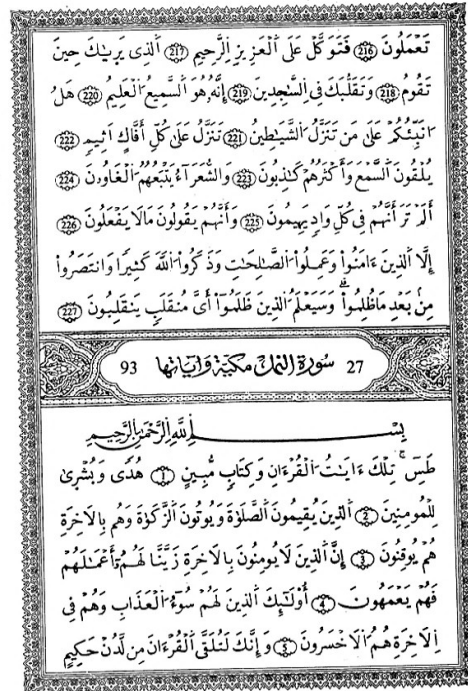 تَعْمَلُونَ 216 فَتَوَكَّلْ عَلَى اَ۬لْعَزِيزِ اِ۬لرَّحِيمِ 217 اِ۬لذِے يَر۪يٰكَ حِينَ
تَقُومُ 218 وَتَقَلُّبَكَ فِے اِ۬لسَّٰجِدِينَ 219 إِنَّهُۥ هُوَ اَ۬لسَّمِيعُ اُ۬لْعَلِيمُ 220 هَلُ
ا۟نَبِّئُكُمْ عَلَىٰ مَن تَنَزَّلُ اُ۬لشَّيَٰطِينُ 221 تَنَزَّلُ عَلَىٰ كُلِّ أَفَّاكٍ اَثِيمٖ 222
يُلْقُونَ اَ۬لسَّمْعَ وَأَكْثَرُهُمْ كَٰذِبُونَ 223 وَالشُّعَرَآءُ يَتْبَعُهُمُ اُ۬لْغَاوُۥنَ 224
أَلَمْ تَرَ أَنَّهُمْ فِے كُلِّ وَادٖ يَهِيمُونَ 225 وَأَنَّهُمْ يَقُولُونَ مَا لَا يَفْعَلُونَ 226
إِلَّا اَ۬لذِينَ ءَامَنُواْ وَعَمِلُواْ اُ۬لصَّٰلِحَٰتِ وَذَكَرُواْ اُ۬للَّهَ كَثِيراٗ وَانتَصَرُواْ
مِنۢ بَعْدِ مَا ظُلِمُواْۖ وَسَيَعْلَمُ اُ۬لذِينَ ظَلَمُوٓاْ أَيَّ مُنقَلَبٖ يَنقَلِبُونَ 227
27 سورة النمل مكية وآياتها 93
بِسْمِ اِ۬للَّهِ اِ۬لرَّحْمَٰنِ اِ۬لرَّحِيمِ
طَسِٓۚ تِلْكَ ءَايَٰتُ اُ۬لْقُرْءَانِ وَكِتَابٖ مُّبِينٍ 1 هُدىٗ وَبُشْر۪ىٰ
لِلْمُومِنِينَ 2 اَ۬لذِينَ يُقِيمُونَ اَ۬لصَّلَوٰةَ وَيُوتُونَ اَ۬لزَّكَوٰةَ وَهُم بِالَاخِرَةِ
هُمْ يُوقِنُونَ 3 إِنَّ اَ۬لذِينَ لَا يُومِنُونَ بِالَاخِرَةِ زَيَّنَّا لَهُمُۥٓ أَعْمَٰلَهُمْ
فَهُمْ يَعْمَهُونَ 4 أُوْلَٰٓئِكَ اَ۬لذِينَ لَهُمْ سُوٓءُ اُ۬لْعَذَابِ وَهُمْ فِے
اِ۬لَاخِرَةِ هُمُ اُ۬لَاخْسَرُونَ 5 وَإِنَّكَ لَتُلَقَّى اَ۬لْقُرْءَانَ مِن لَّدُنْ حَكِيمٍ